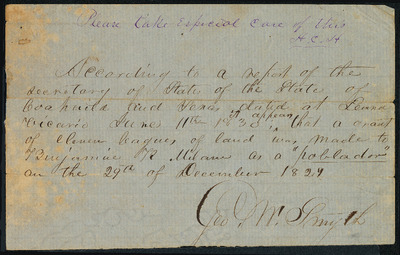 Please Take Especial Care of this
H.C.H.
According to a report of the
secretary of State of the State of
Coahuila and Texas dated at Leona
Vicario June 11th 183 it appears that a grant
of eleven leagues of land was made to
Benjamin R Milam as a "poblador"
on the 29th of December 1829
Geo. W. Smyth